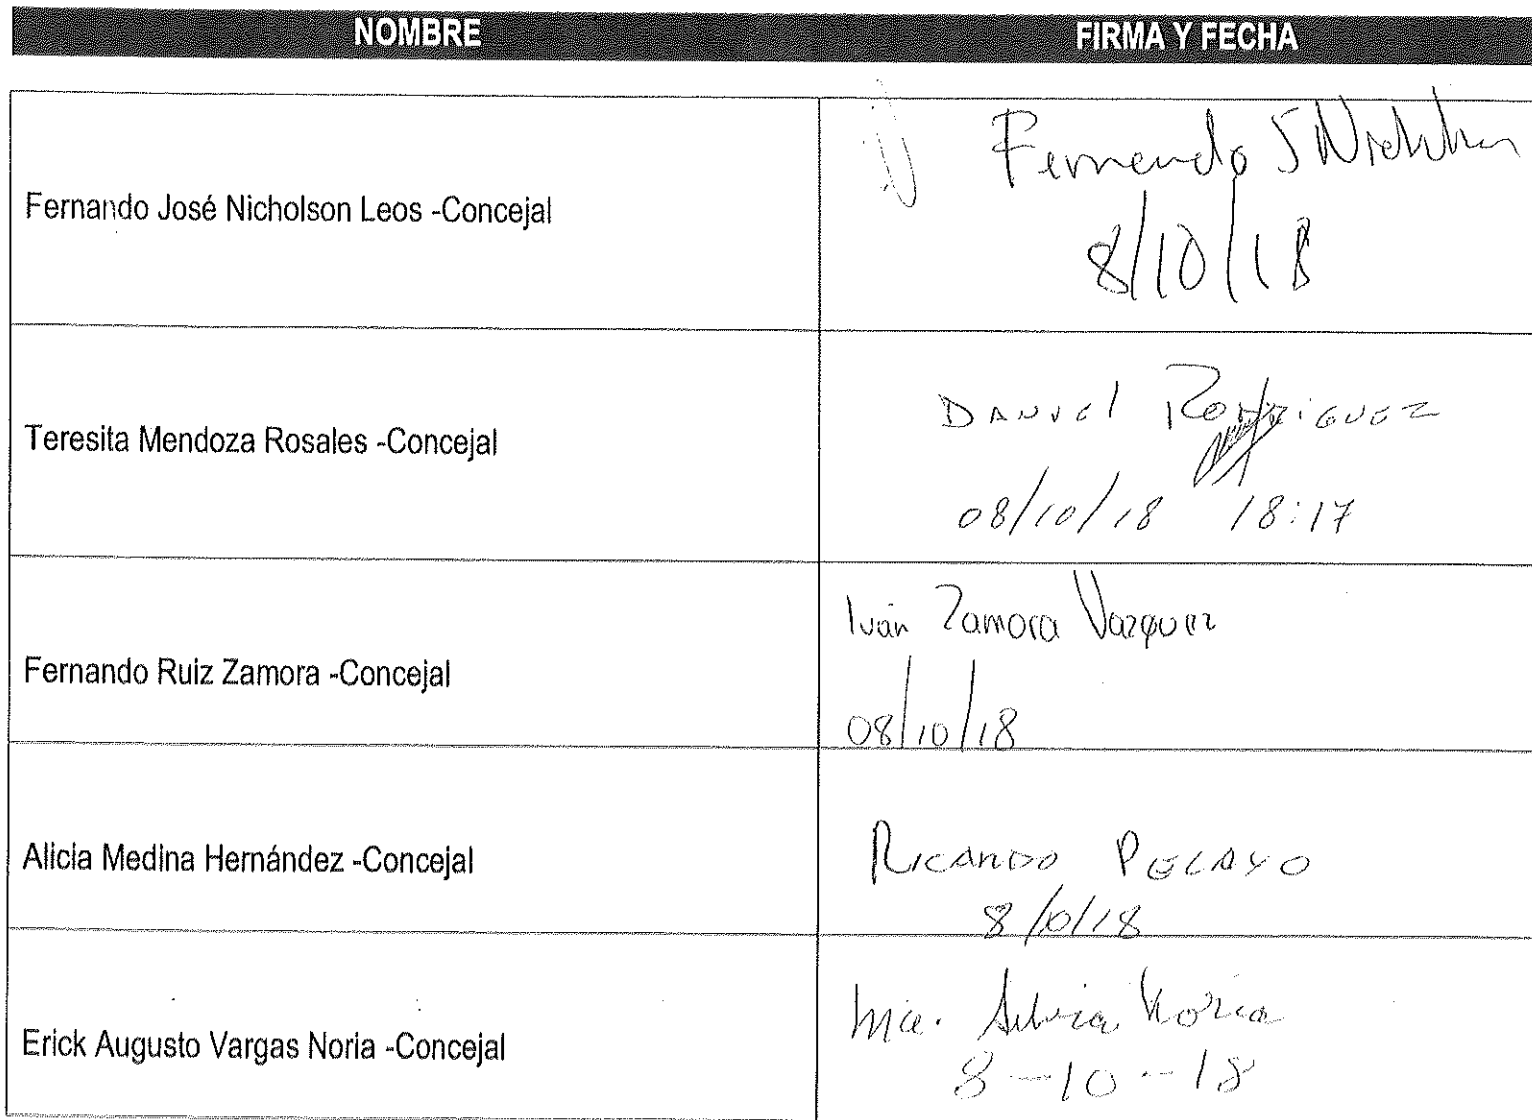 NOMBRE FIRMA Y FECHA
Fernando José Nicholson Leos -Concejal
Fernando J Nicholson
8/10/18
Teresita Mendoza Rosales -Concejal
DANIEL RODRIGUEZ
08/10/18 18:17
Fernando Ruiz Zamora -Concejal
Iván Zamora Vazquez
08/10/18
Alicia Medina Hernández -Concejal
RICARDO PELAYO
8/10/18
Erick Augusto Vargas Noria -Concejal
Ma. Silvia Noria
8-10-18